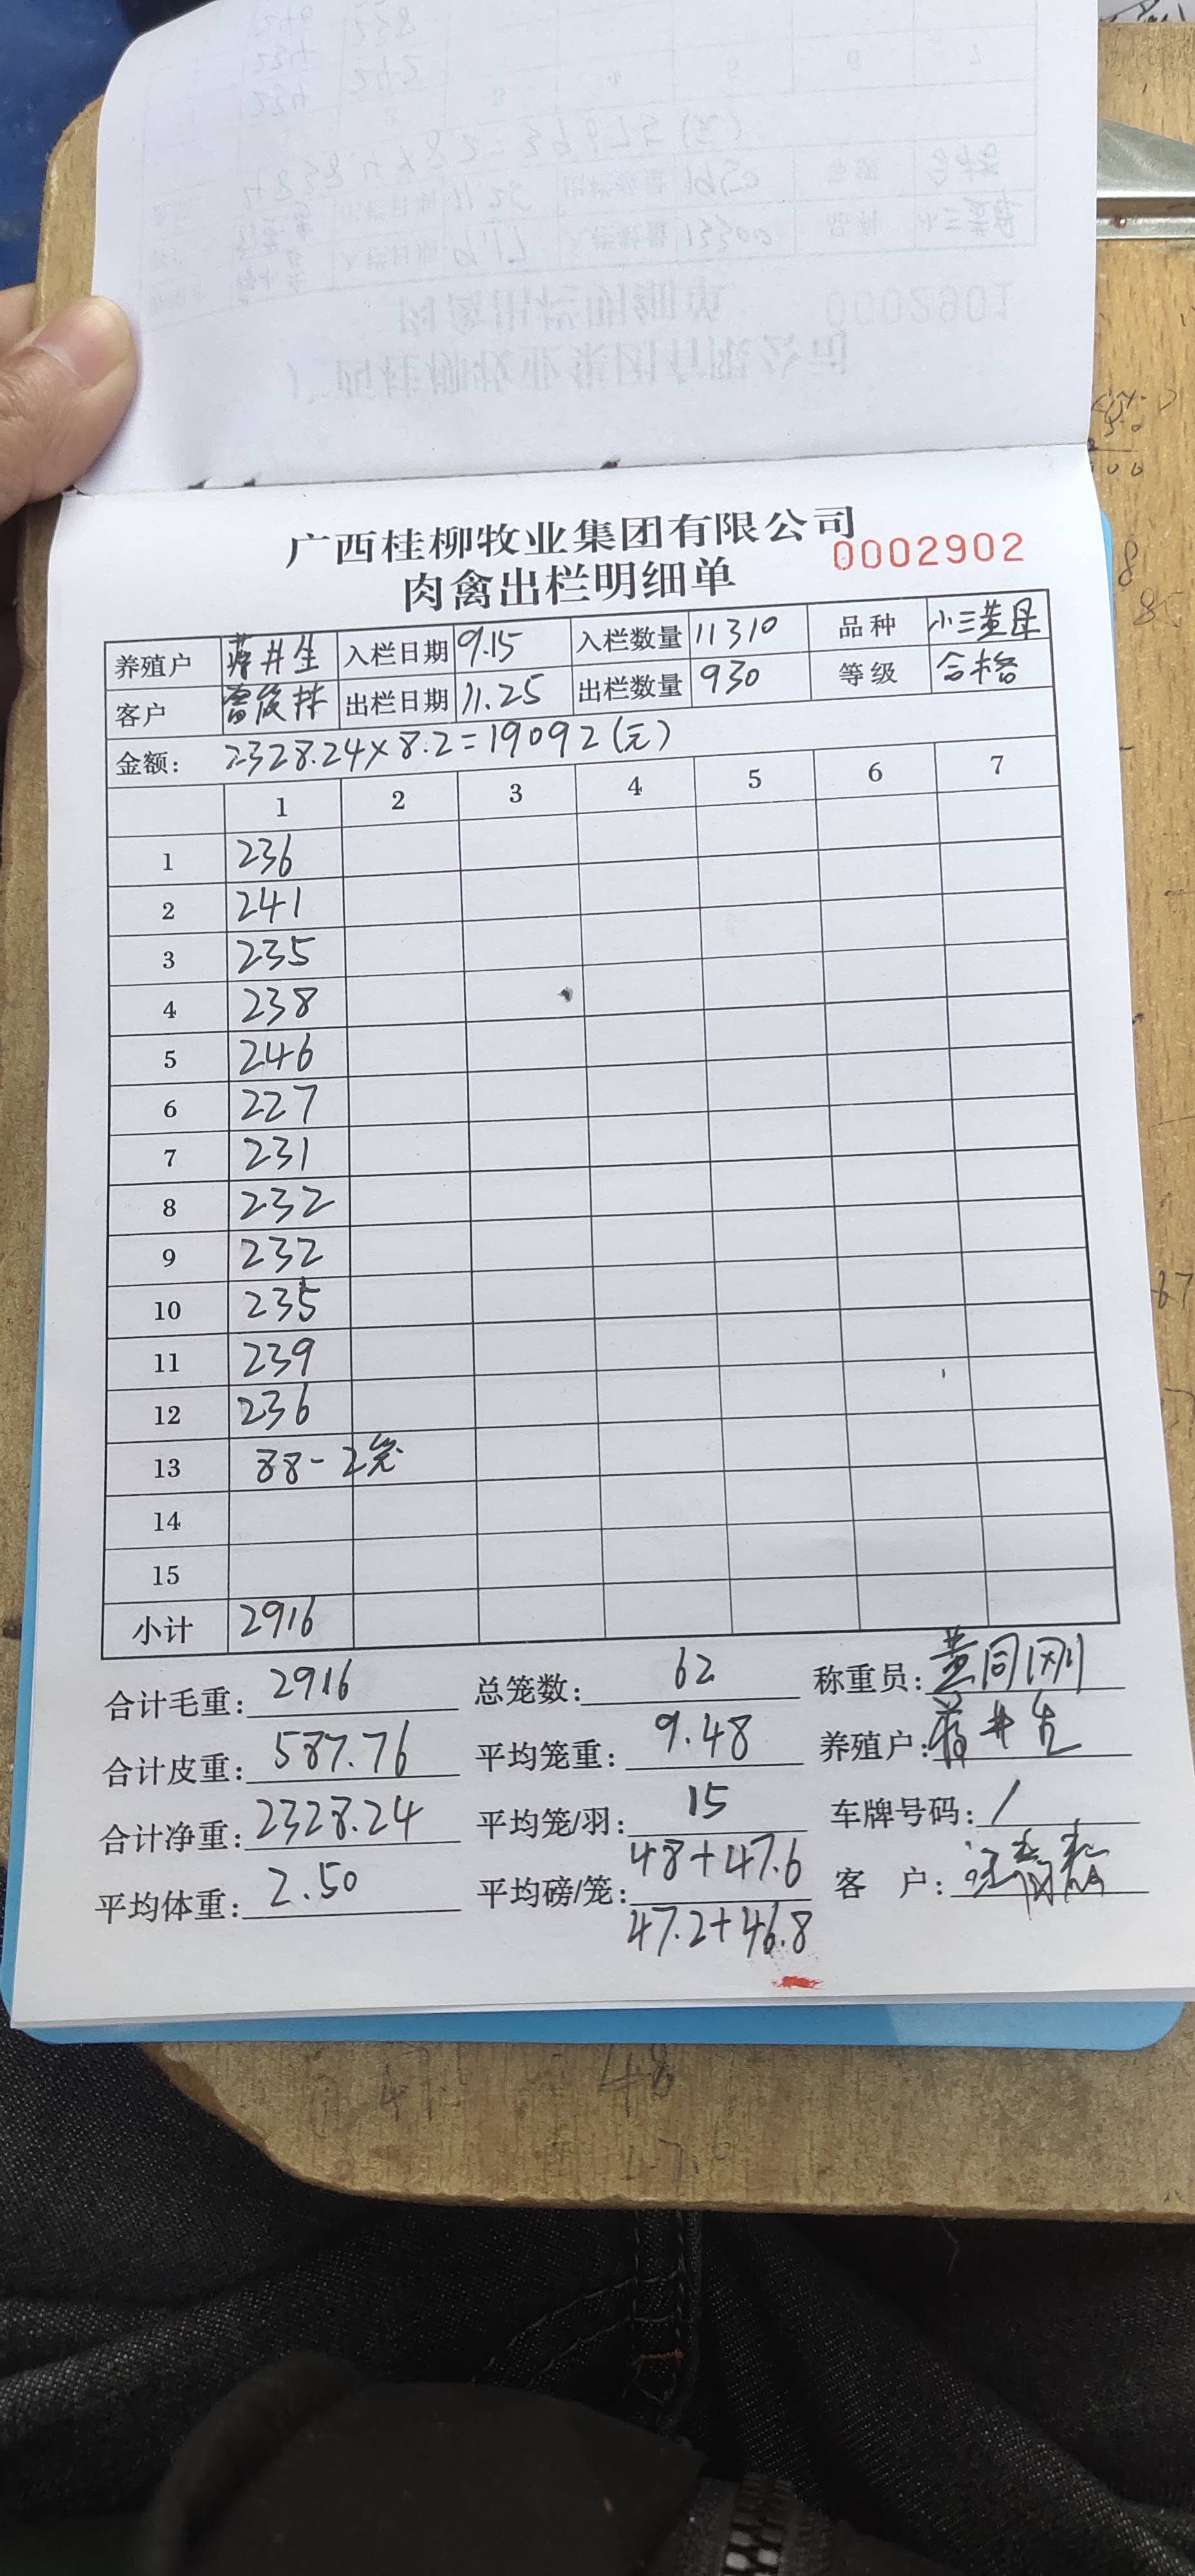 广西桂柳牧业集团有限公司
肉禽出栏明细单 0002902
养殖户 蒋井生 入栏日期 9.15 入栏数量 11310 品种 小三黄
客户 出栏日期 11.25 出栏数量 930 等级 合格
金额: 2328.24×8.2=19092(元)
1 2 3 4 5 6 7
1 236
2 241
3 235
4 238
5 246
6 227
7 231
8 232
9 232
10 235
11 239
12 236
13 88-2笼
14
15
小计 2916
合计毛重: 2916 总笼数: 62 称重员: 黄同刚
合计皮重: 587.76 平均笼重: 9.48 养殖户: 蒋井生
合计净重: 2328.24 平均笼/羽: 15 车牌号码: /
平均体重: 2.50 平均磅/笼: 48+47.6 客 户:
47.2+46.8